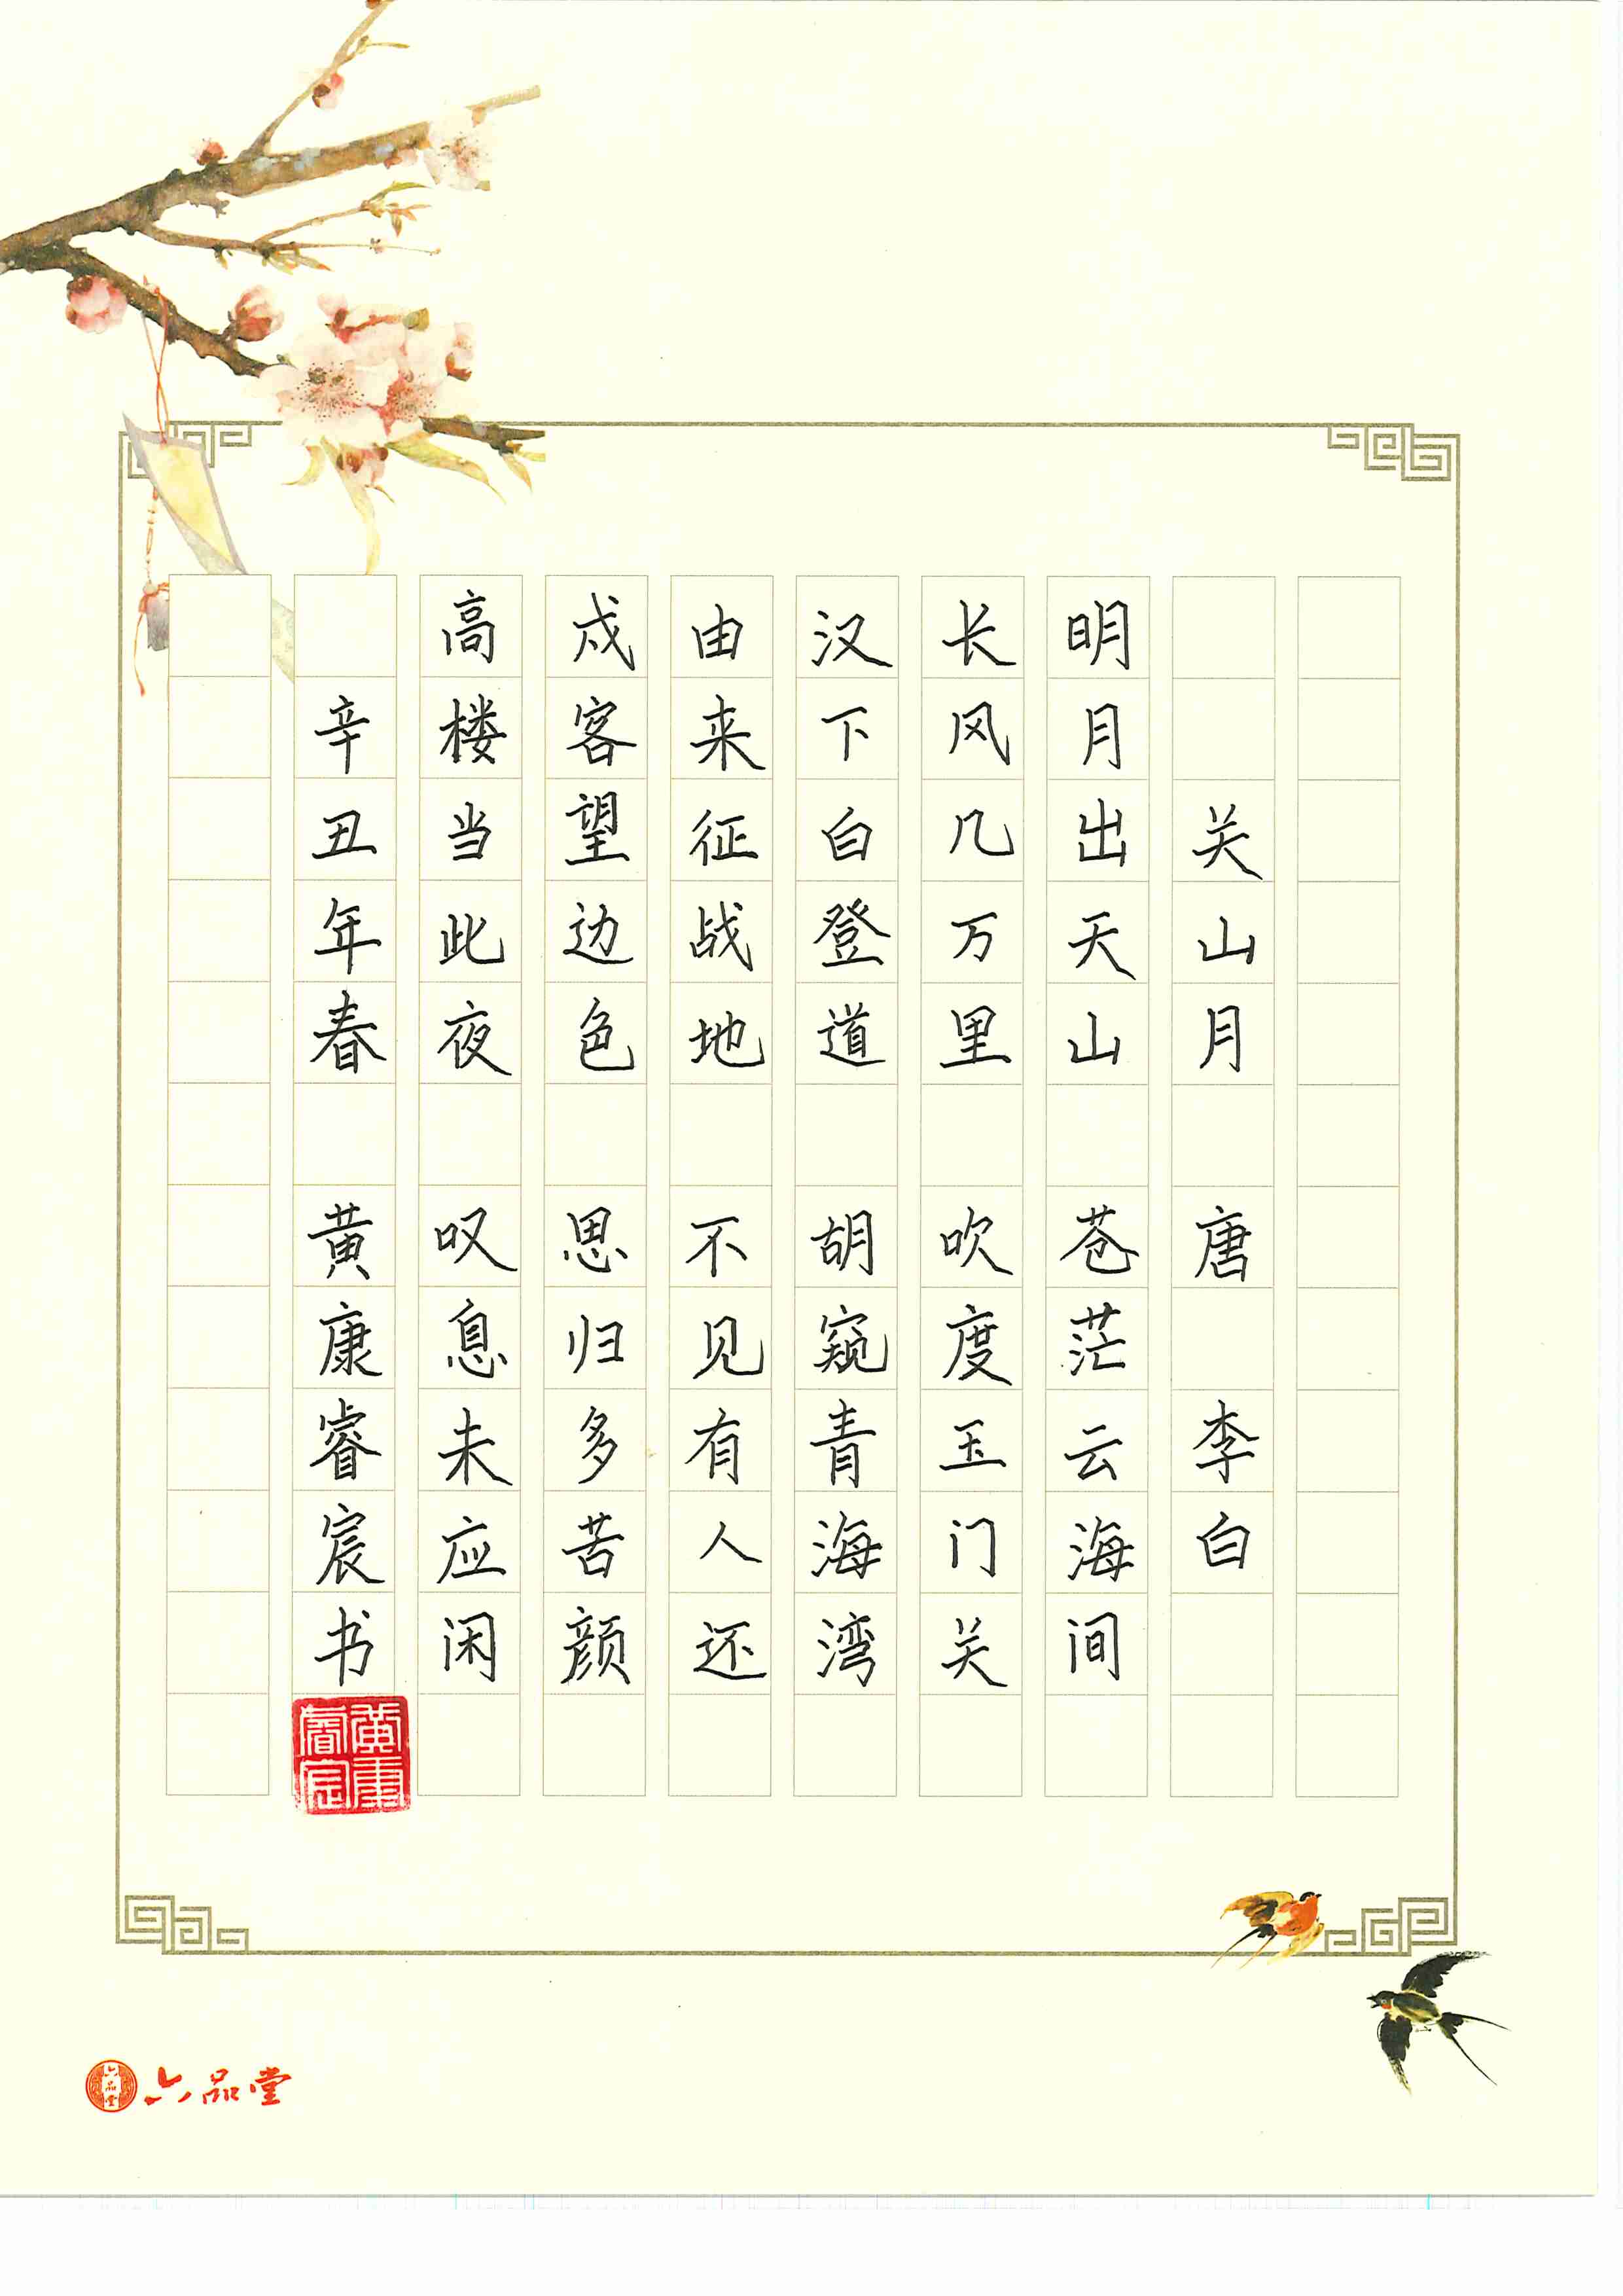 关山月 唐 李白
明月出天山 苍茫云海间
长风几万里 吹度玉门关
汉下白登道 胡窥青海湾
由来征战地 不见有人还
戍客望边色 思归多苦颜
高楼当此夜 叹息未应闲
辛丑年春 黄康睿宸书
黄康睿宸
六品堂
六品堂